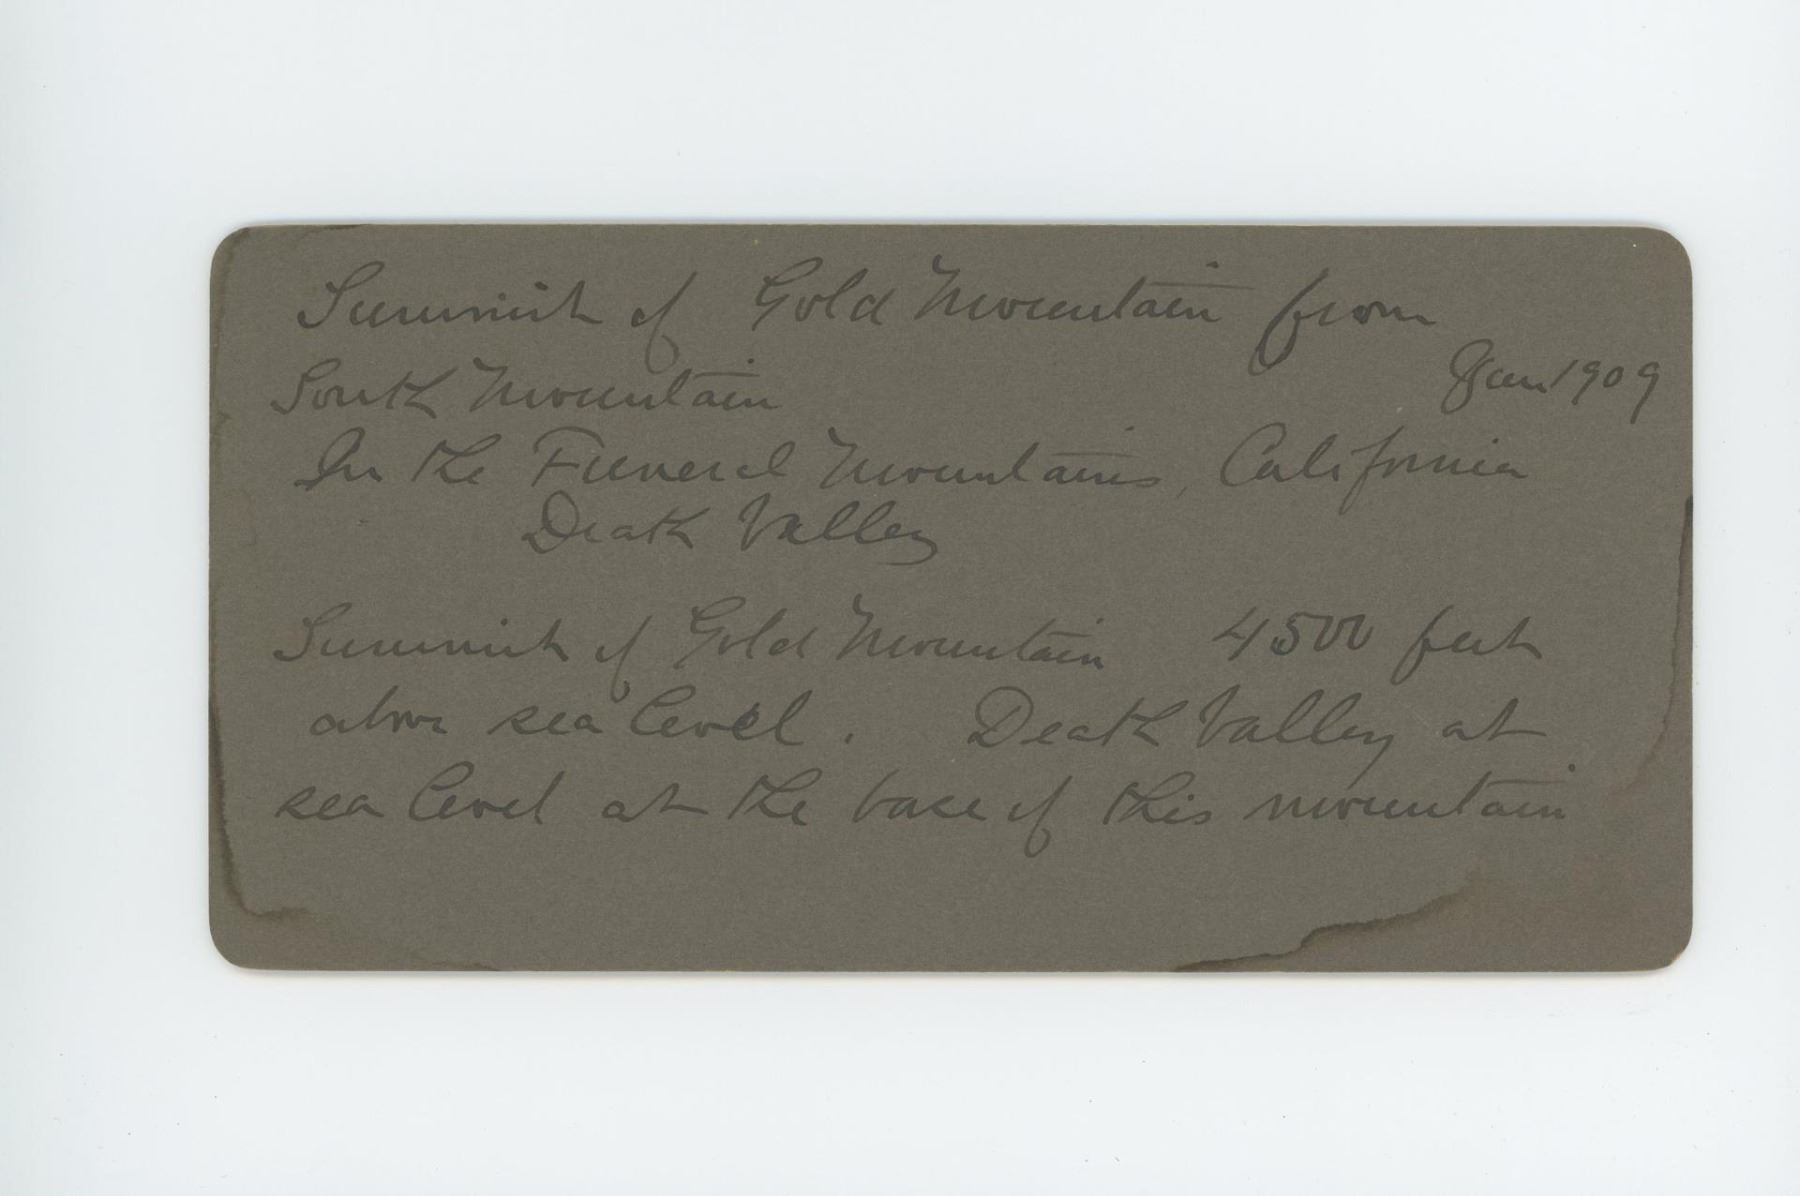 Summit of Gold Mountain from
South Mountain
Jan 1909
In the Funeral Mountains, California
Death Valley
Summit of Gold Mountain 4500 feet
above sea level. Death Valley at
sea level at the base of this mountain